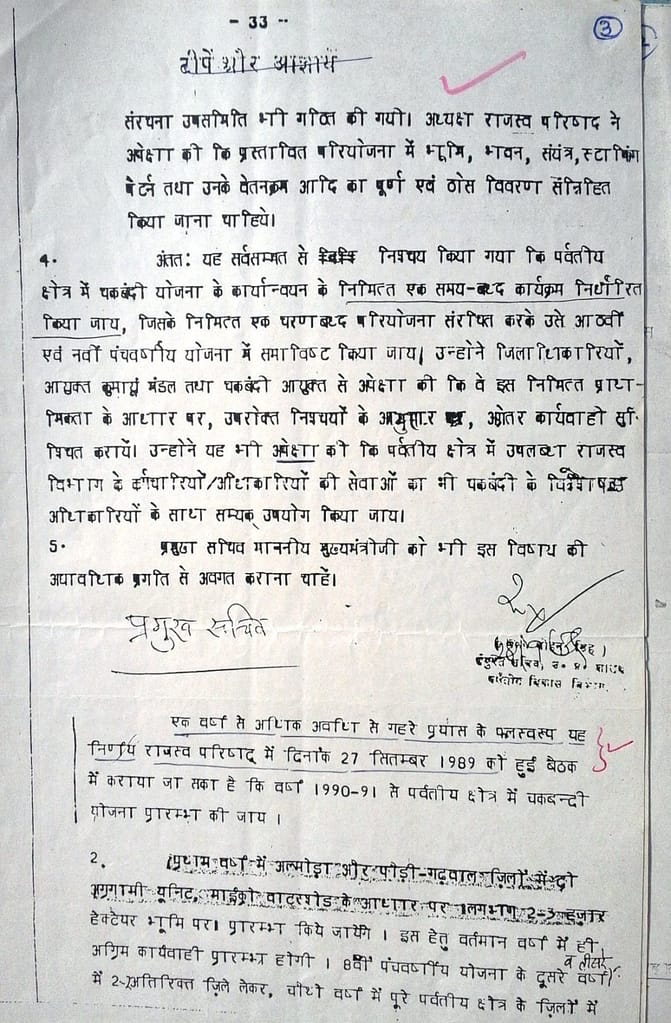 - 33 --
3
टीपें और आज्ञायें
संरचना उपसमिति भी गठित की गयी। अध्यक्ष राजस्व परिषद ने
अपेक्षा की कि प्रस्तावित परियोजना में भूमि, भवन, संयंत्र, स्टाफिंग
पैटर्न तथा उनके वेतनक्रम आदि का पूर्ण एवं ठोस विवरण सन्निहित
किया जाना चाहिये।
4. अंतत: यह सर्वसम्मत से निश्चय किया गया कि पर्वतीय
क्षेत्र में चकबंदी योजना के कार्यान्वयन के निमित्त एक समय-बध्द कार्यक्रम निर्धारित
किया जाय, जिसके निमित्त एक चरणबध्द परियोजना संरचित करके उसे आठवीं
एवं नवीं पंचवर्षीय योजना में समाविष्ट किया जाय। उन्होने जिलाधिकारियों,
आयुक्त कुमायूं मंडल तथा चकबंदी आयुक्त से अपेक्षा की कि वे इस निमित्त प्राथ-
मिकता के आधार पर, उपरोक्त निश्चयों के अनुसार अग्रेतर कार्यवाही सुनि-
श्चित करायें। उन्होने यह भी अपेक्षा की कि पर्वतीय क्षेत्र में उपलब्ध राजस्व
विभाग के कर्मचारियों/अधिकारियों की सेवाओं का भी चकबंदी के
अधिकारियों के साथ सम्यक् उपयोग किया जाय।
5. प्रमुख सचिव माननीय मुख्यमंत्रीजी को भी इस विषय की
अद्यावधिक प्रगति से अवगत कराना चाहें।
प्रमुख सचिव
सचिव, उ. प्र. शासन
पर्वतीय विकास विभाग
एक वर्ष से अधिक अवधि से गहरे प्रयास के फलस्वरूप यह
निर्णय राजस्व परिषद में दिनांक 27 सितम्बर 1989 को हुई बैठक
में कराया जा सका है कि वर्ष 1990-91 से पर्वतीय क्षेत्र में चकबन्दी
योजना प्रारम्भ की जाय ।
2. प्रथम वर्ष में अल्मोड़ा और पौड़ी-गढ़वाल ज़िलों में दो
अग्रगामी यूनिट, माईक्रो वाटरशेड के आधार पर लगभग 2-3 हज़ार
हेक्टेयर भूमि पर। प्रारम्भ किये जायेंगे । इस हेतु वर्तमान वर्ष में ही
अग्रिम कार्यवाही प्रारम्भ होगी । 8वीं पंचवर्षीय योजना के दूसरे व तीसरे वर्ष
में 2-अतिरिक्त ज़िले लेकर, चौथे वर्ष में पूरे पर्वतीय क्षेत्र के ज़िलों में